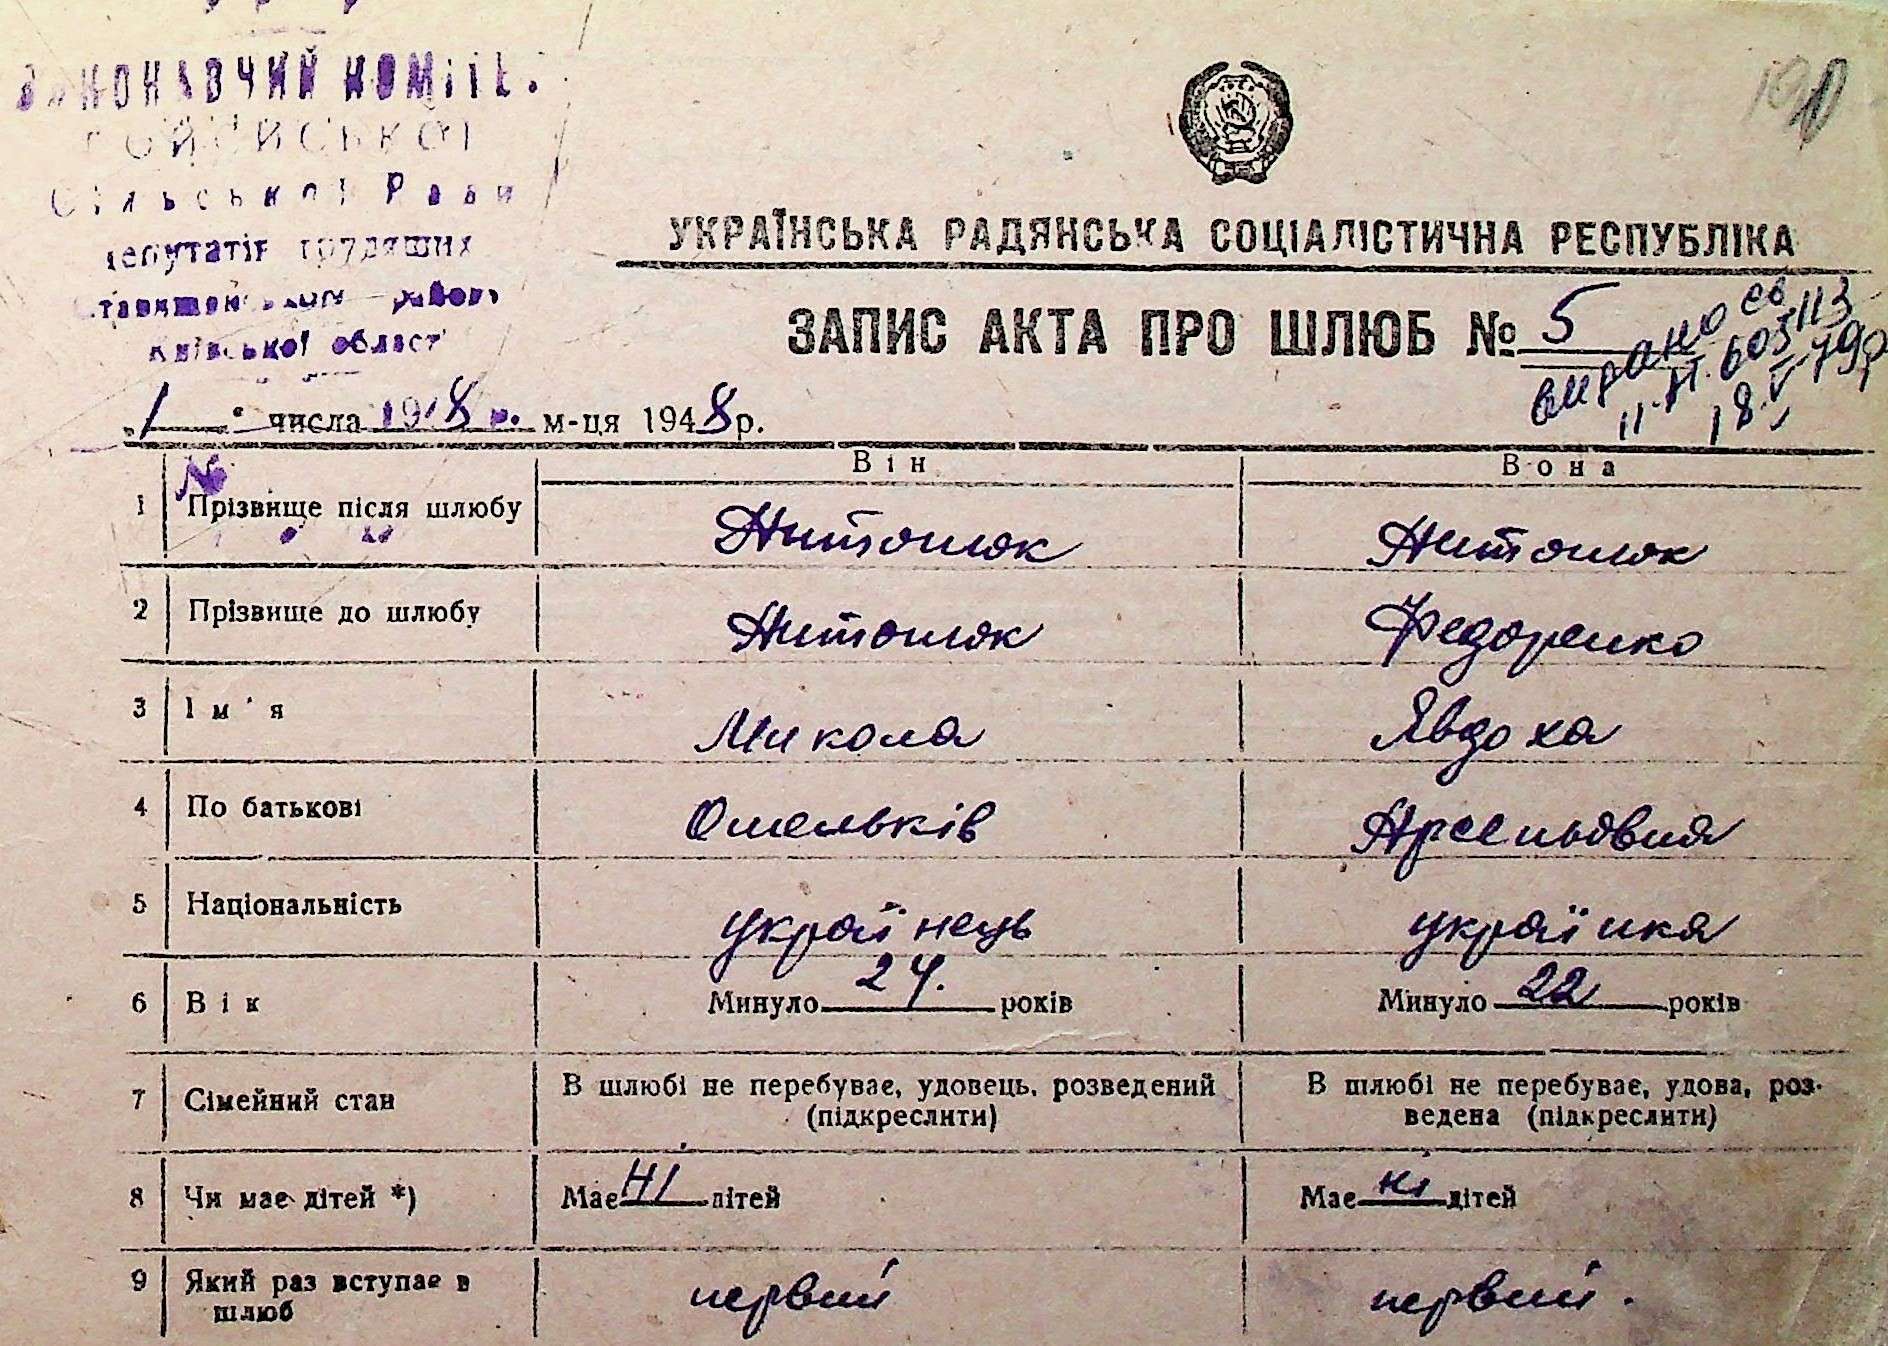 ВИКОНАВЧИЙ КОМІТЕТ
Сільської Ради
депутатів трудящих
Ставищенського району
Київської області
190
УКРАЇНСЬКА РАДЯНСЬКА СОЦІАЛІСТИЧНА РЕСПУБЛІКА
ЗАПИС АКТА ПРО ШЛЮБ № 5
видано св
II. 603113
18.V.79р
1 числа м-ця 1948р.
Він Вона
1 Прізвище після шлюбу Антонюк Антонюк
2 Прізвище до шлюбу Антонюк Федоренко
3 Ім'я Микола Явдоха
4 По батькові Омельків Арсеньовна
5 Національність українець українка
6 Вік Минуло 24. років Минуло 22 років
7 Сімейний стан В шлюбі не перебуває, удовець, розведений В шлюбі не перебуває, удова, роз-
(підкреслити) ведена (підкреслити)
8 Чи має дітей *) Має ні дітей Має ні дітей
9 Який раз вступає в первий первий.
шлюб